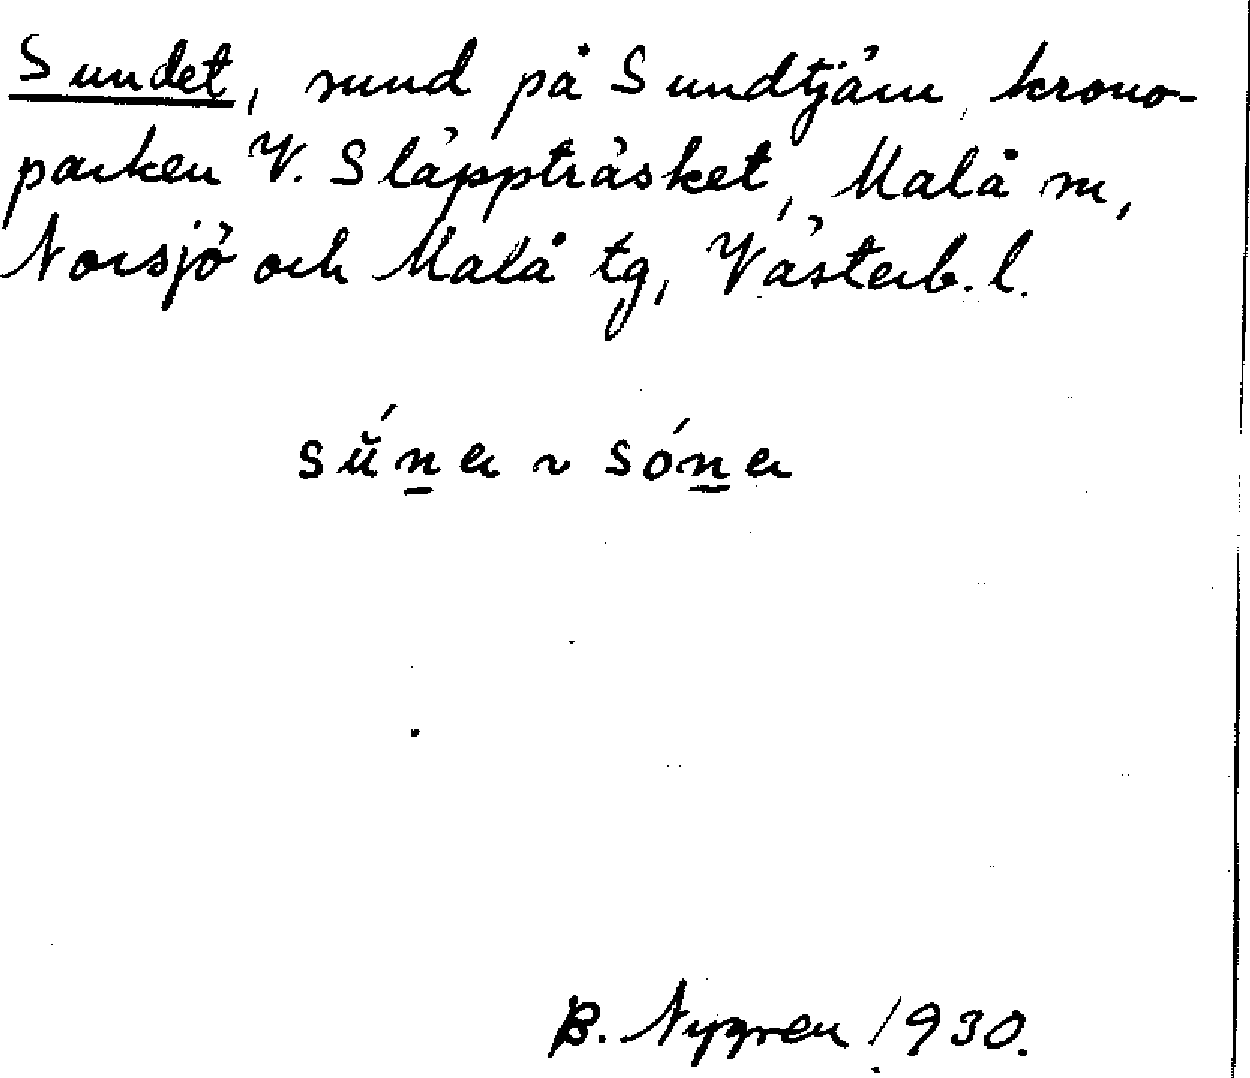 Sundet, sund på Sundtjärn, krono-
parken V. Släppträsket, Malå sn,
Norsjö och Malå tg, Västerb. l.
sŭ́n̲a ~ són̲a
B. Nygren 1930.